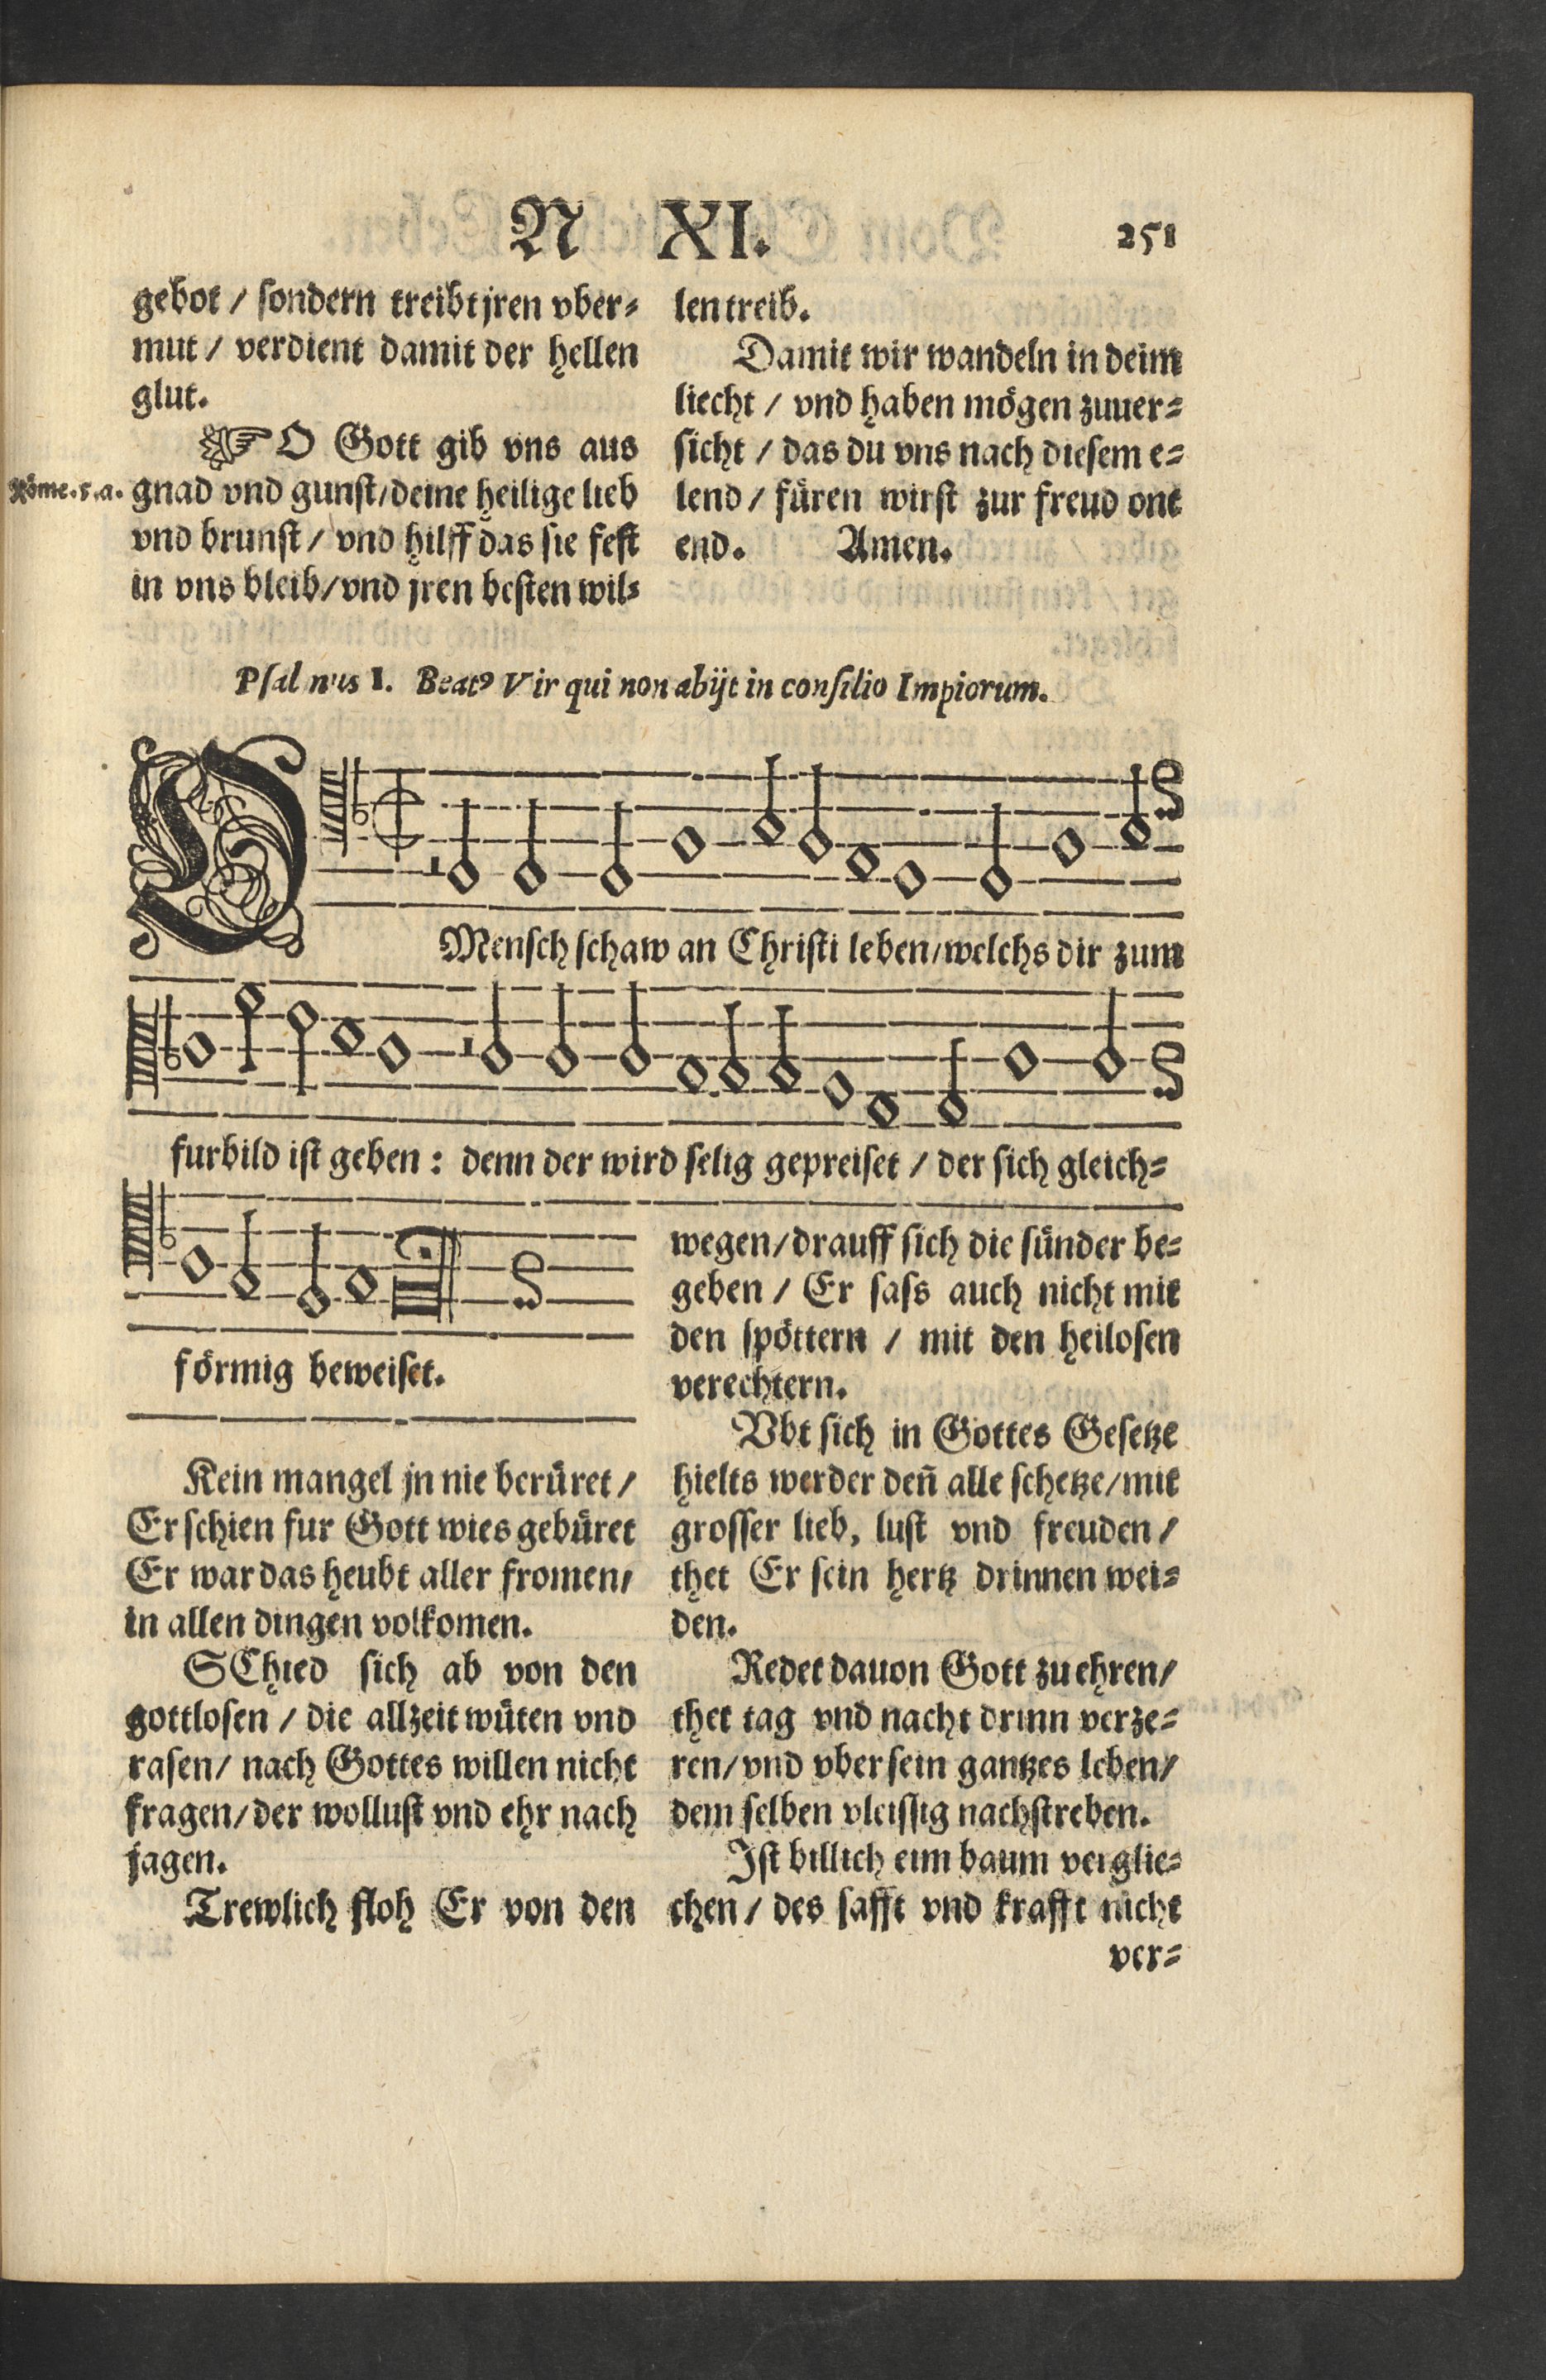 N XI. 251
gebot / sondern treibt jren vber⸗
mut / verdient damit der hellen
glut.
☞ O Gott gib vns aus
Röme.5.a. gnad vnd gunst/deine heilige lieb
vnd brunst / vnd hilff das sie fest
in vns bleib/vnd jren besten wil⸗
len treib.
Damit wir wandeln in deim
liecht / vnd haben mögen zuuer⸗
sicht / das du vns nach diesem e⸗
lend / füren wirst zur freud ont
end. Amen.
Psalmus I. Beatꝰ Vir qui non abijt in consilio Impiorum.
O Mensch schaw an Christi leben/welchs dir zum
furbild ist geben : denn der wird selig gepreiset / der sich gleich⸗
förmig beweiset.
Kein mangel jn nie berüret /
Er schien fur Gott wies gebüret
Er war das heubt aller fromen/
in allen dingen volkomen.
SChied sich ab von den
gottlosen / die allzeit wüten vnd
rasen/ nach Gottes willen nicht
fragen/der wollust vnd ehr nach
jagen.
Trewlich floh Er von den
wegen/drauff sich die sünder be⸗
geben / Er sass auch nicht mit
den spöttern / mit den heilosen
verechtern.
Vbt sich in Gottes Gesetze
hielts werder deñ alle schetze/mit
grosser lieb, lust vnd freuden /
thet Er sein hertz drinnen wei⸗
den.
Redet dauon Gott zu ehren/
thet tag vnd nacht drinn verze⸗
ren/vnd vber sein gantzes leben/
dem selben vleissig nachstreben.
Ist billich eim baum verglie⸗
chen / des safft vnd krafft nicht
ver⸗